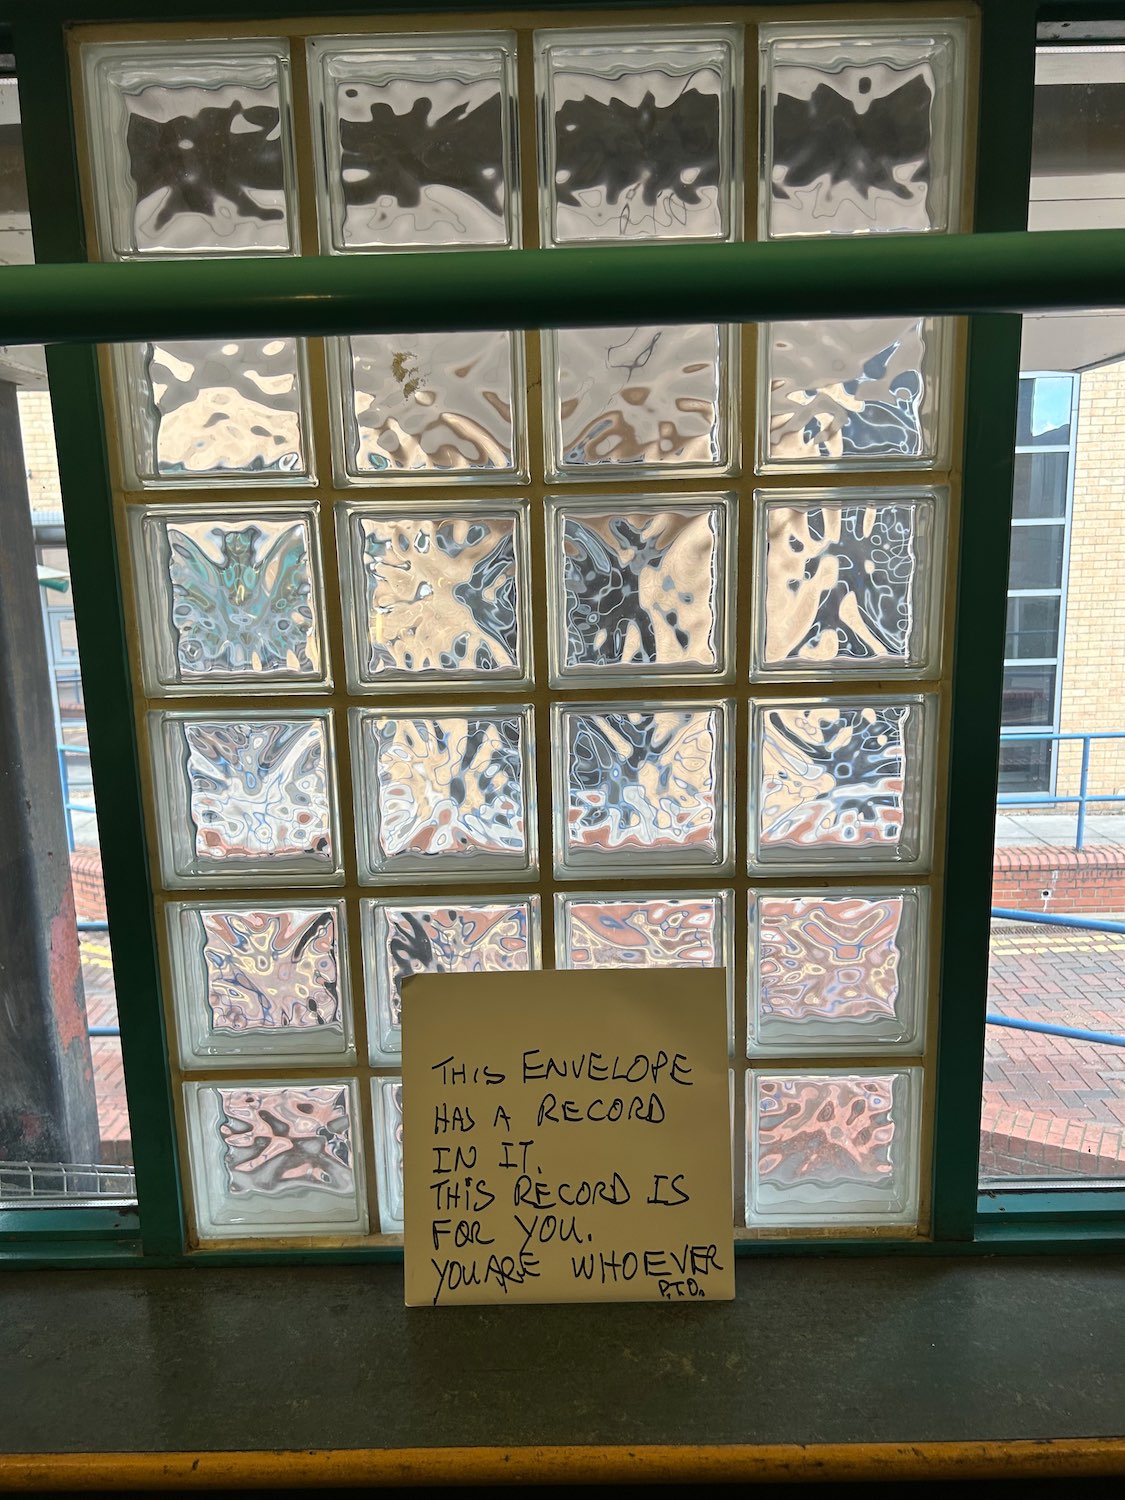 THIS ENVELOPE
HAS A RECORD
IN IT.
THIS RECORD IS
FOR YOU.
YOU ARE WHOEVER
P.T.O.